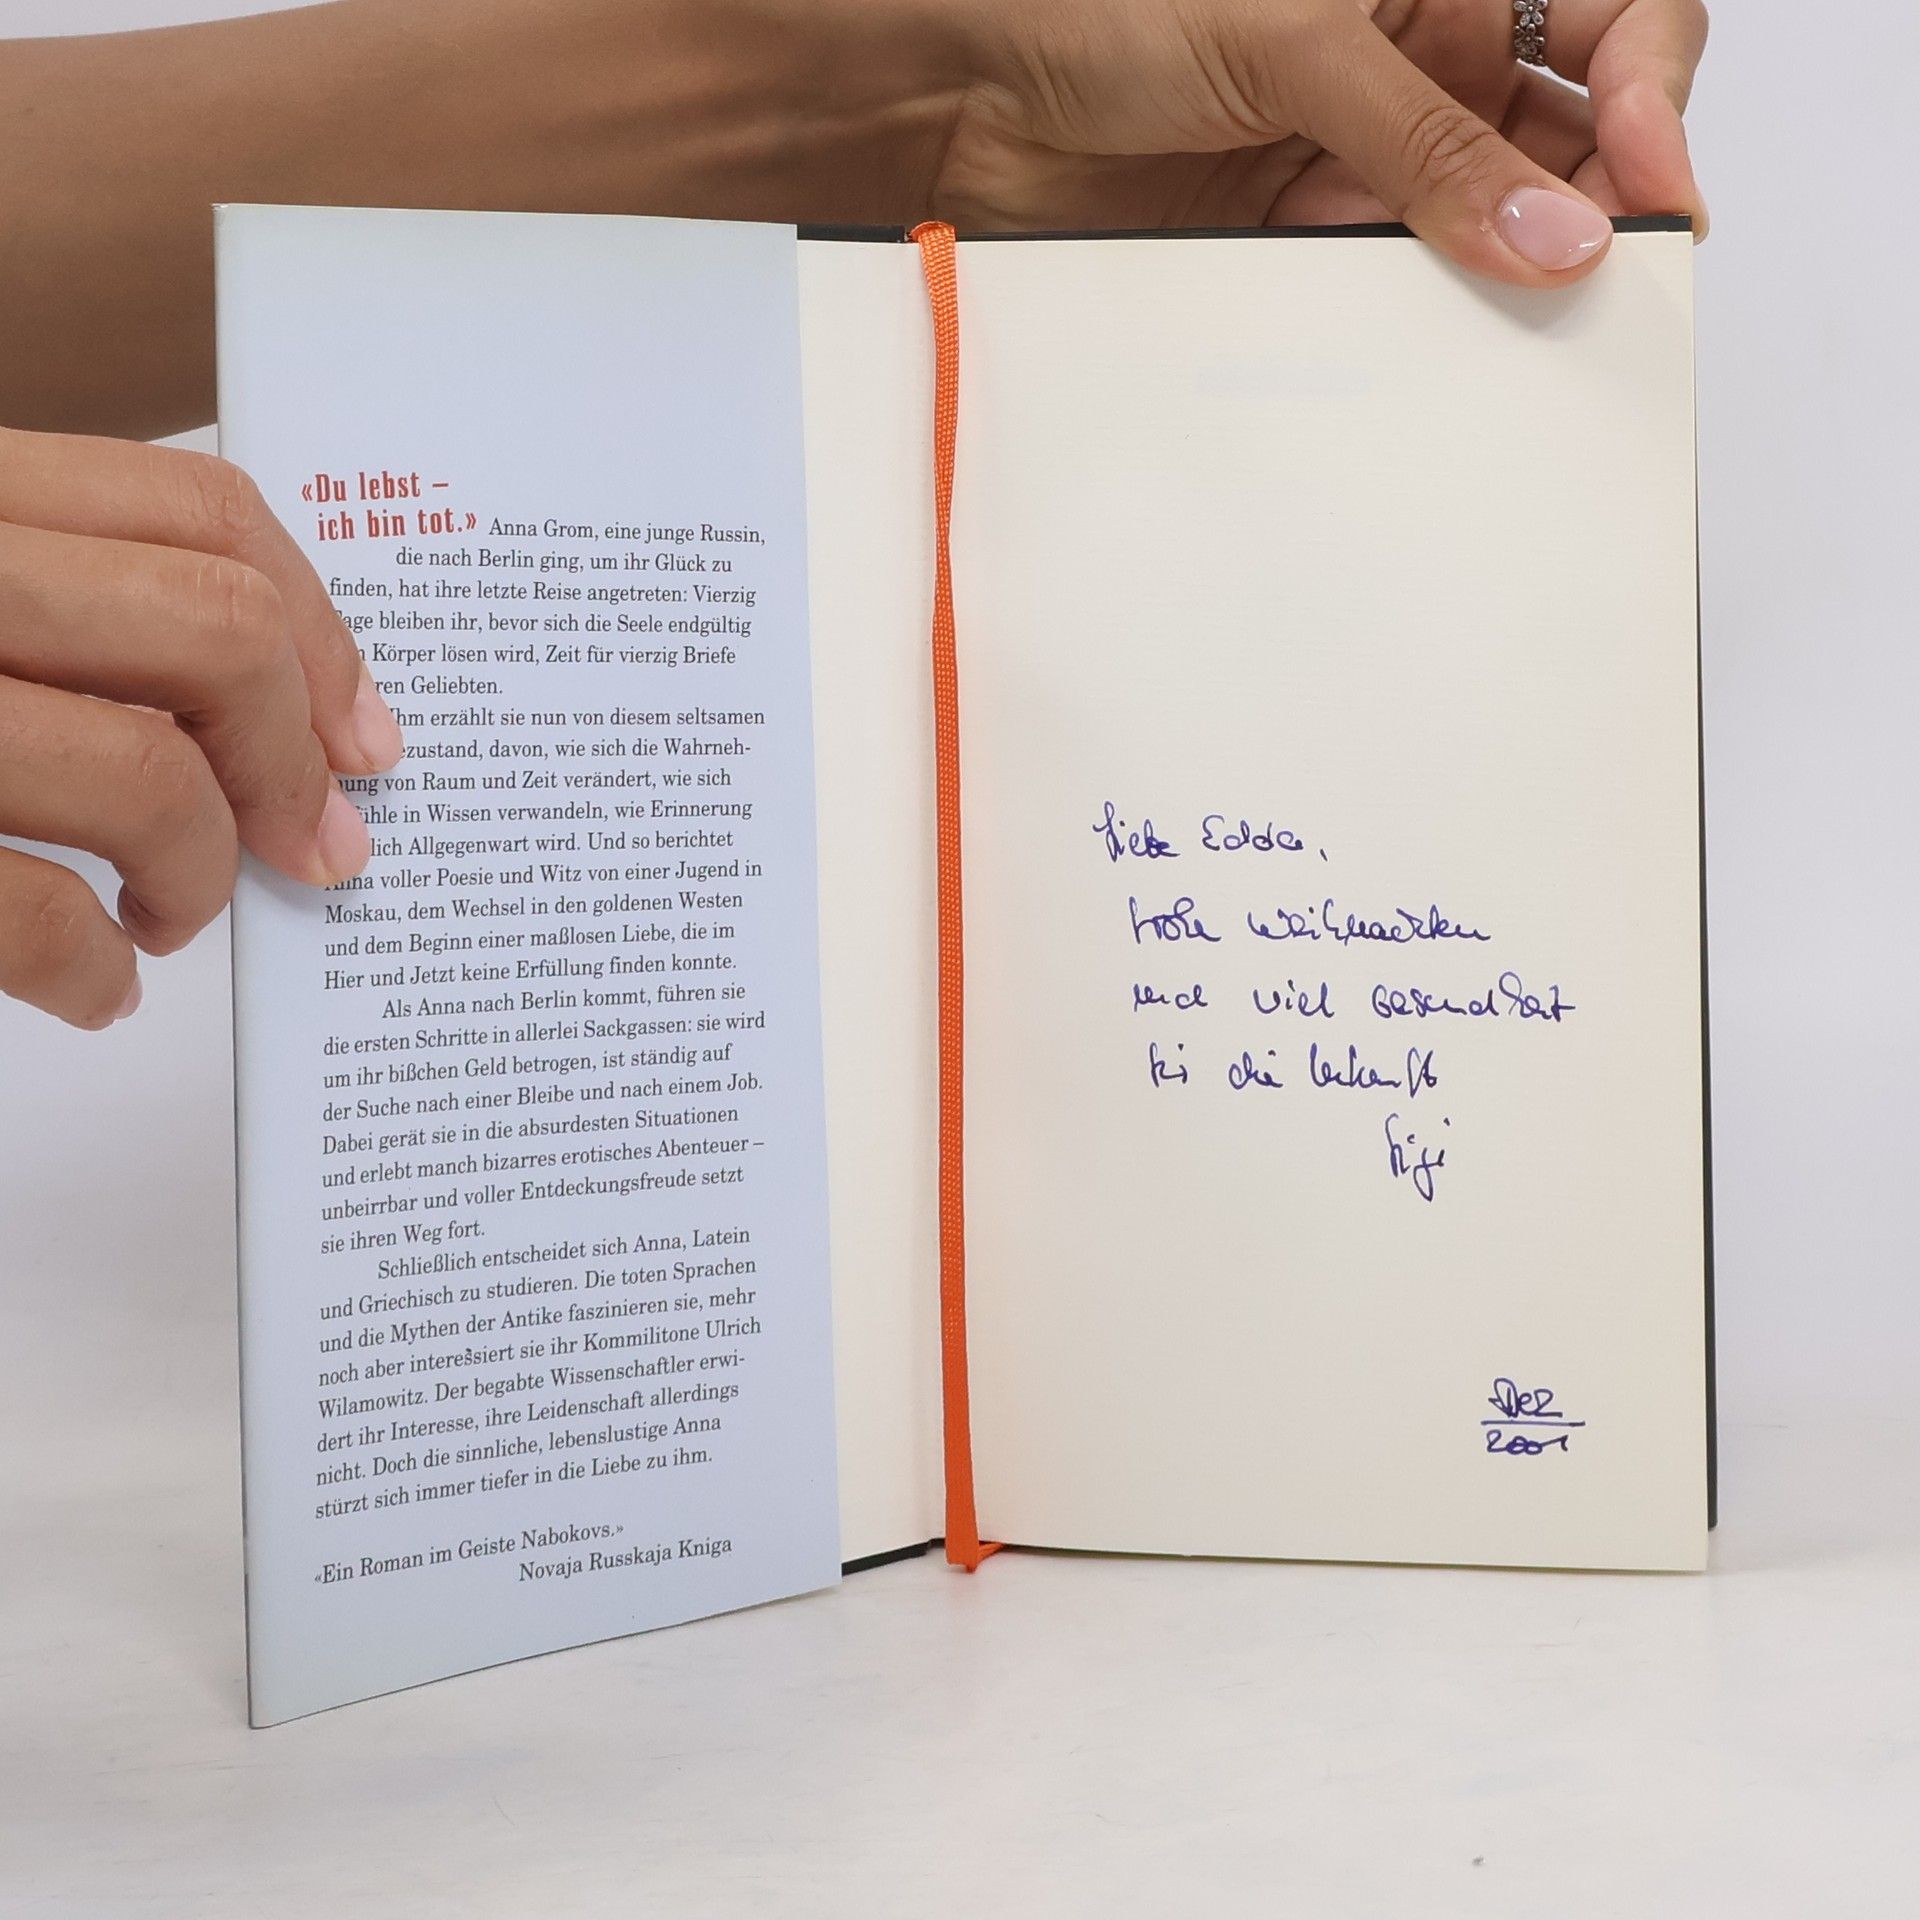 «Du lebst –
ich bin tot.» Anna Grom, eine junge Russin,
die nach Berlin ging, um ihr Glück zu
finden, hat ihre letzte Reise angetreten: Vierzig
age bleiben ihr, bevor sich die Seele endgültig
Körper lösen wird, Zeit für vierzig Briefe
ren Geliebten.
Ihm erzählt sie nun von diesem seltsamen
ezustand, davon, wie sich die Wahrneh-
ung von Raum und Zeit verändert, wie sich
ühle in Wissen verwandeln, wie Erinnerung
lich Allgegenwart wird. Und so berichtet
Anna voller Poesie und Witz von einer Jugend in
Moskau, dem Wechsel in den goldenen Westen
und dem Beginn einer maßlosen Liebe, die im
Hier und Jetzt keine Erfüllung finden konnte.
Als Anna nach Berlin kommt, führen sie
die ersten Schritte in allerlei Sackgassen: sie wird
um ihr bißchen Geld betrogen, ist ständig auf
der Suche nach einer Bleibe und nach einem Job.
Dabei gerät sie in die absurdesten Situationen
und erlebt manch bizarres erotisches Abenteuer –
unbeirrbar und voller Entdeckungsfreude setzt
sie ihren Weg fort.
Schließlich entscheidet sich Anna, Latein
und Griechisch zu studieren. Die toten Sprachen
und die Mythen der Antike faszinieren sie, mehr
noch aber interessiert sie ihr Kommilitone Ulrich
Wilamowitz. Der begabte Wissenschaftler erwi-
dert ihr Interesse, ihre Leidenschaft allerdings
nicht. Doch die sinnliche, lebenslustige Anna
stürzt sich immer tiefer in die Liebe zu ihm.
«Ein Roman im Geiste Nabokovs.»
Novaja Russkaja Kniga
Liebe Edda,
frohe Weihnachten
und viel Gesundheit
für die Zukunft
Dez
2001